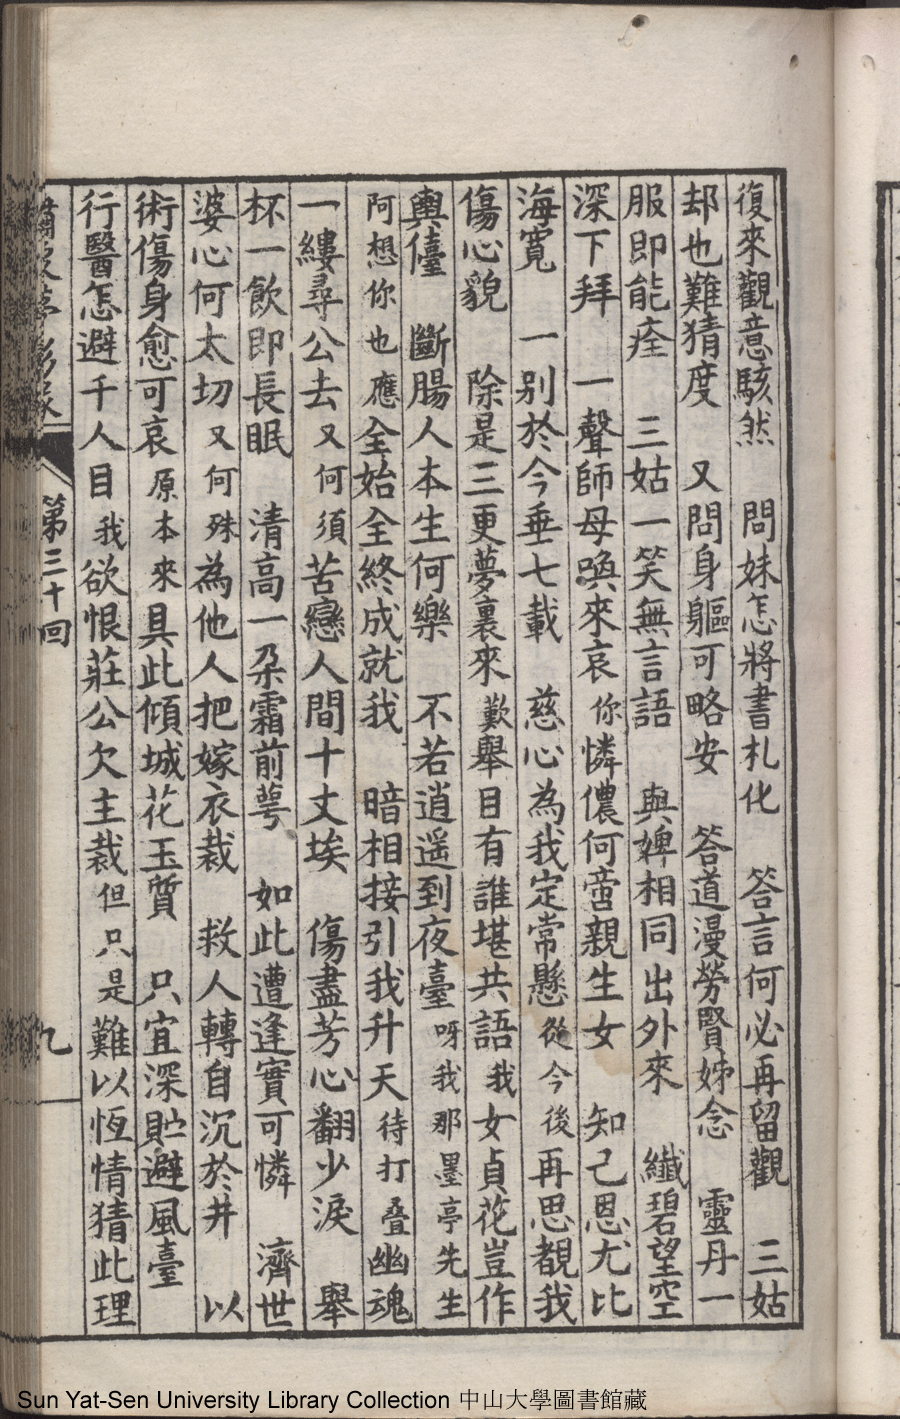 復來觀意駭然　問妹怎將書札化　答言何必再留觀　三姑
却也難猜度　又問身軀可略安　答道漫勞賢姊念　靈丹一
服即能痊　三姑一笑無言語　與婢相同出外來　纖碧望空
深下拜　一聲師母喚來哀　你憐儂何啻親生女　知己恩尤比
海寬　一别於今垂七載　慈心為我定常懸　從今後再思覩我
傷心貌　除是三更夢裏來　歎舉目有誰堪共語　我女貞花豈作
輿儓　斷腸人本生何樂　不若逍遥到夜臺　呀我那墨亭先生
阿想你也應全始全終成就我　暗相接引我升天　待打叠幽魂
一縷尋公去　又何須苦戀人間十丈埃　傷盡芳心翻少淚　舉
杯一飲即長眠　清高一朵霜前萼　如此遭逢實可憐　濟世
婆心何太切　又何殊為他人把嫁衣裁　救人轉自沉於井　以
術傷身愈可哀　原本來具此傾城花玉質　只宜深貯避風臺
行醫怎避千人目　我欲恨莊公欠主裁　但只是難以恆情猜此理
第三十回
九
Sun Yat-Sen University Library Collection 中山大學圖書館藏